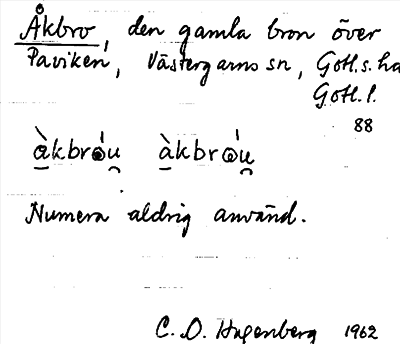 Åkbro, den gamla bron över
Paviken, Västergarns sn, Gotl. s. hd
Gotl. l.
88
àkbrǻu̯ àkbrǻu̯
Numera aldrig använd.
C. O. Hugenberg 1962